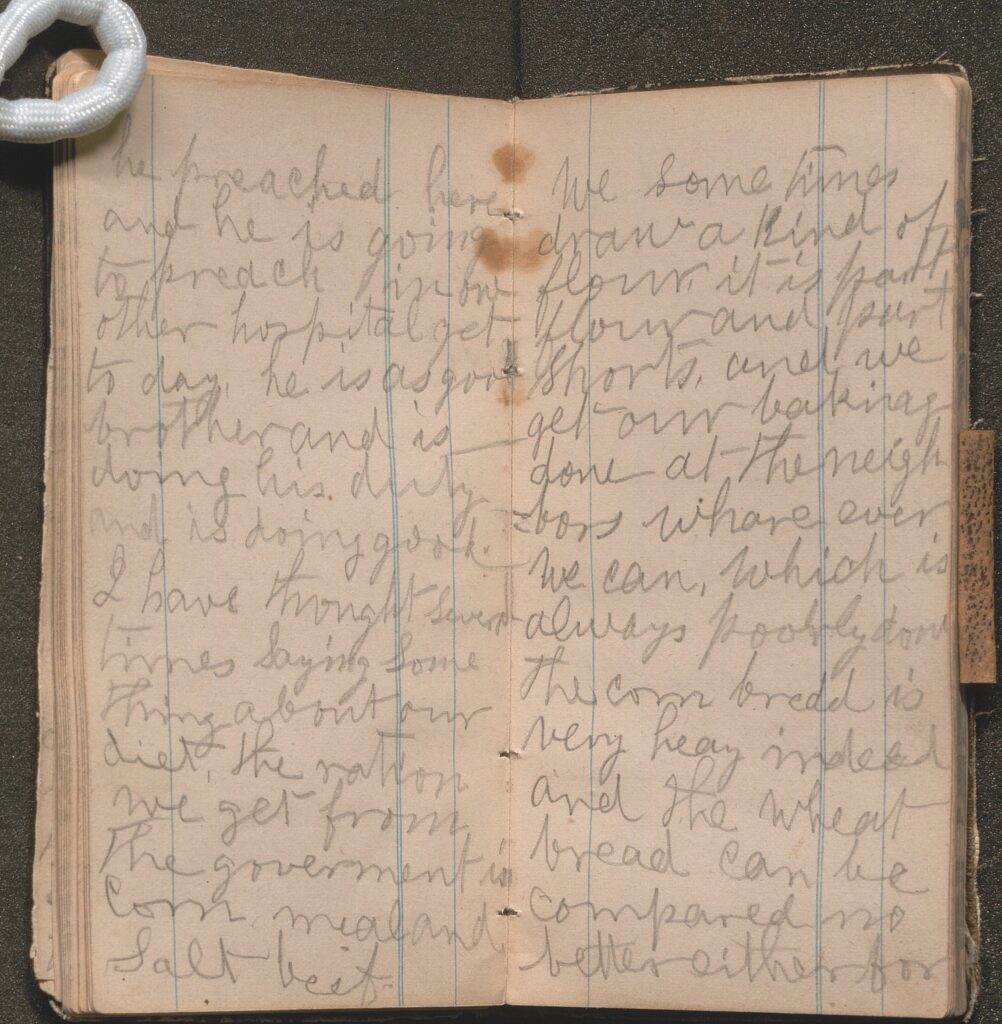 he preached here
and he is going
to preach in ow
other hospital get
to day, he is as good
brother and is
doing his duty
and is doing good.
I have thought sever
times saying some
thing about our
diet, the ration
we get from
the goverment is
corn mealand
Salt beef.
We some times
draw a kind of
flour, it is part
flour and part
Shorts, and we
get our baking
done at the neigh
=bors whare ever
we can, which is
always poorly done
the corn bread is
very heay indeed
and the wheat
bread can be
compared no
better either for